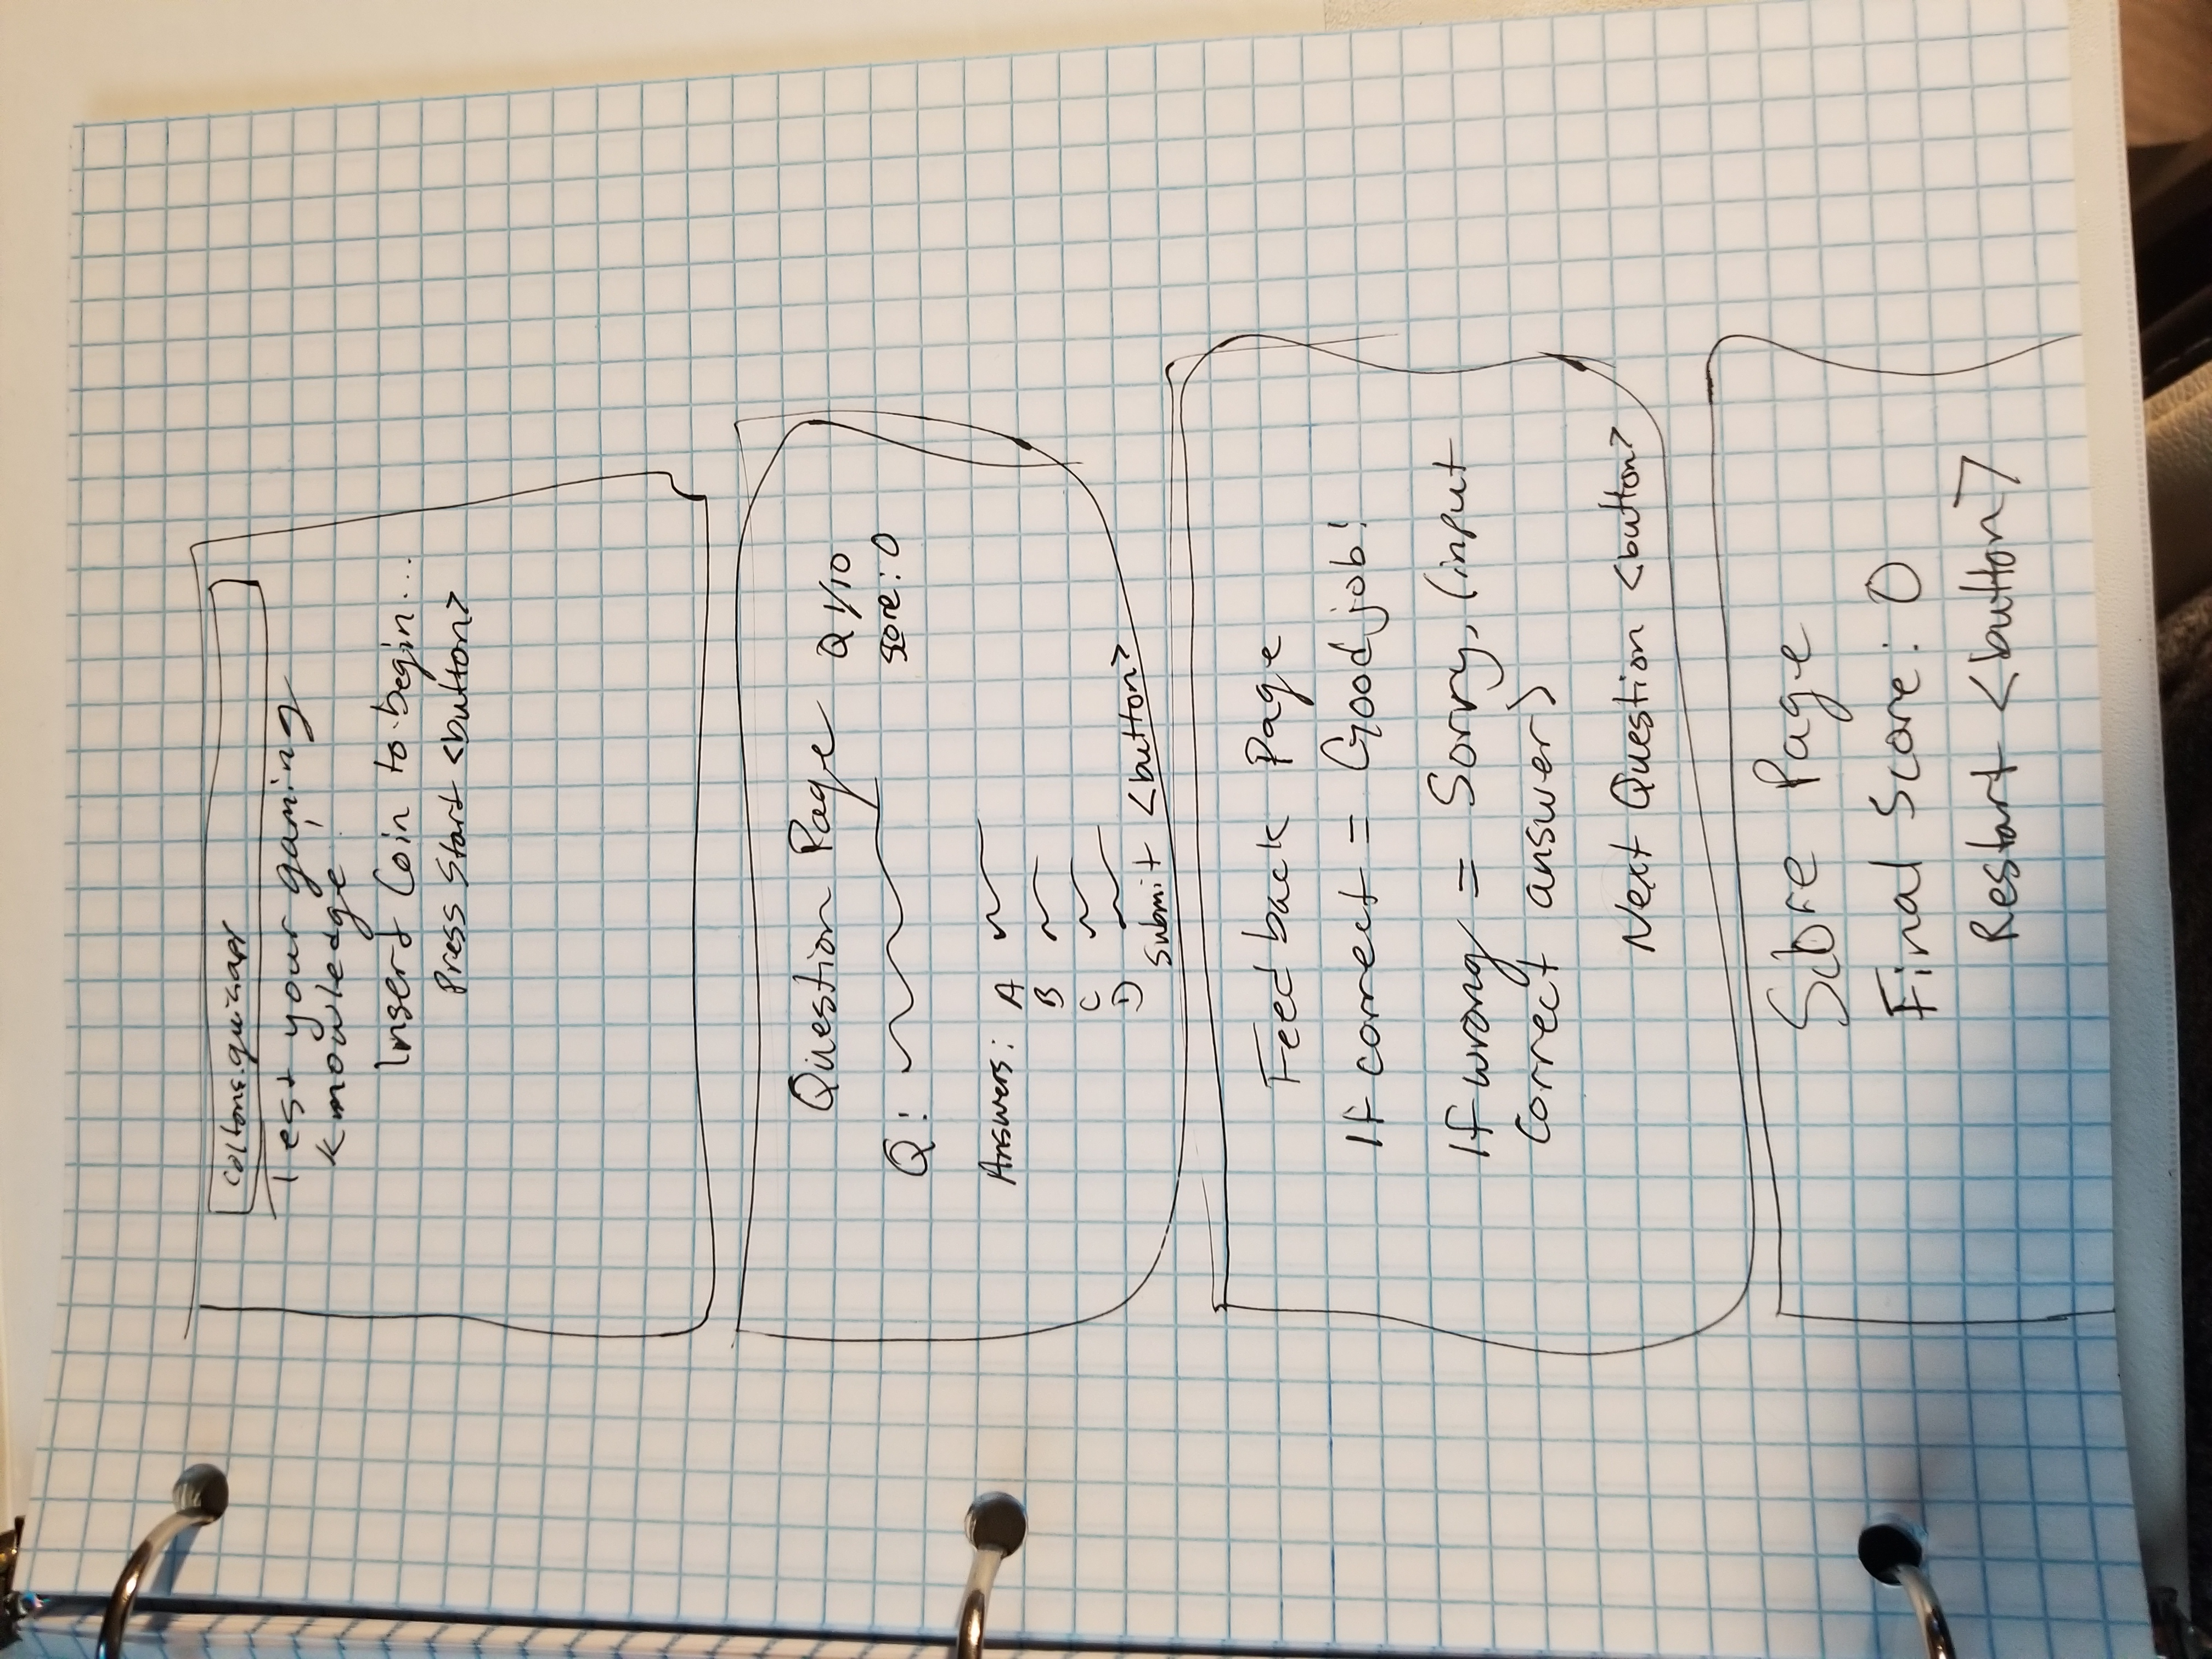 Test your gaming
knowledge!
Insert Coin to begin...
Press Start <button>
Question Page
Q 1/10
score: 0
Q:
Answers: A
B
C
D
Submit <button>
Feedback Page
If correct = Good job!
If wrong = Sorry, (input
correct answer)
Next Question <button>
Score Page
Final Score: 0
Restart <button>